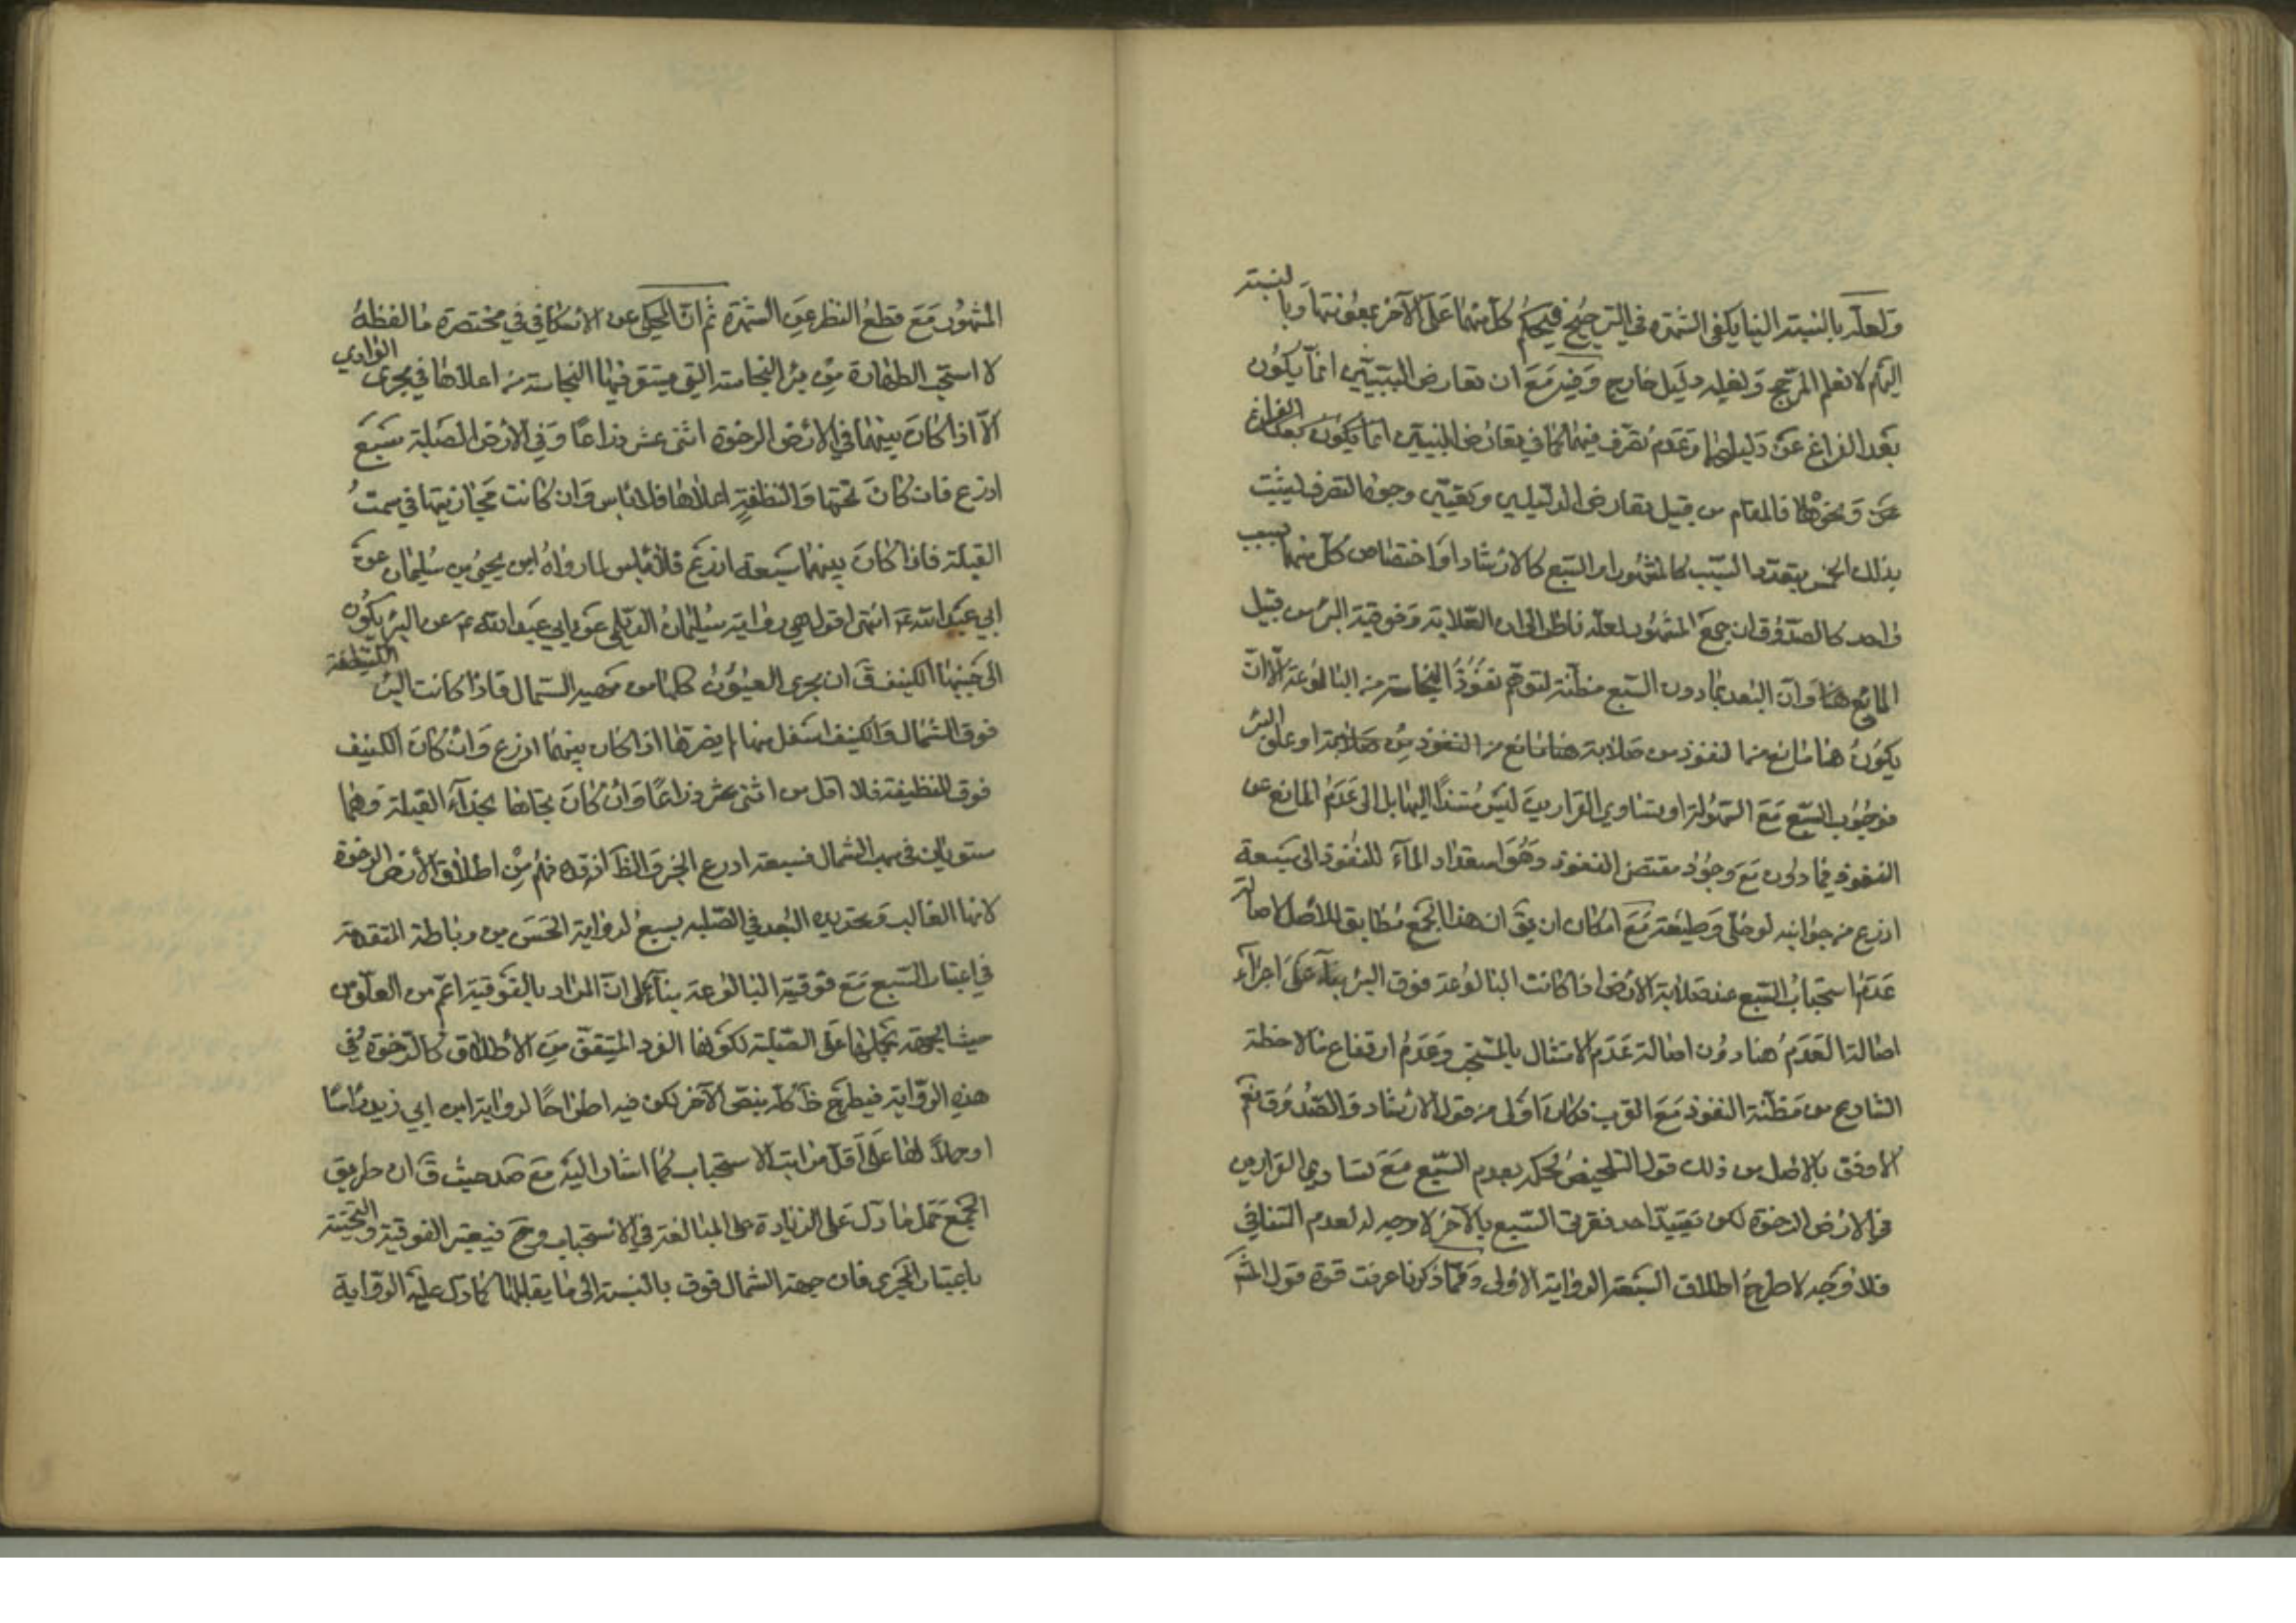 ولعله بالنسبة الينا يكفى الشهرة فى الترجيح فيحكم كل منهما على الآخر بمعونتها وبالنسبة
اليهم لانعلم المرجح ولعله دليل خارج وفيه مع ان تعارض البينتين انما يكون
بعد الفراغ عن دليليهما وعدم تصرف فيهما كما في تعارض البينتين انما يكون بعد الفراغ
عن ونحوها فالمقام من قبيل تعارض الدليلين وتعيين وجوه التصرف ليثبت
بذلك الحكم بتعدد السبب كالمشهور او السبع كالارشاد او اختصاص كل منهما بسبب
واحد كالصدوق ان جمع المشهور لعله ناظر الى ان الصلابة وفوقية البئر من قبيل
المانع هنا وان البعد بما دون السبع مظنة لتوهم نفوذ النجاسة من البالوعة الا ان
يكون هنا مانع عنها لنفوذ من صلابة هنا مانع من النفوذ من صلابة او علو البئر
فوجوب السبع مع السهولة او تساوى القرارين ليس مستندا اليها بل الى عدم المانع عن
النفوذ فيما دون مع وجود مقتضى النفوذ وهو استعداد الماء للنفوذ الى سبعة
اذرع من جوانبه لو خلى وطبعه مع امكان ان يق ان هذا الجمع مطابق للاصل لاصالة
عدم استحباب السبع عند صلابة الارض اذا كانت البالوعة فوق البئر بناء على اجراء
اصالة العدم هنا دون اصالة عدم الامتثال بالمستحب وعدم ارتفاع ملاحظة
الشارع من مظنة النفوذ مع القرب فكان اولى من قول الارشاد والصدوق نعم
الاوفق بالاصل من ذلك قول التلخيص لحكمه بعدم السبع مع تساوى القرارين
فى الارض الرخوة لكن تقييد احد فقرتى السبع بالآخر لا وجه له لعدم التنافى
فلا وجه لاطرح اطلاق السبعة الرواية الاولى ومما ذكرنا عرفت قوة قول المشهور
المشهور مع قطع النظر عن الشهرة ثم ان المحكى عن الاسكافى في مختصره ما لفظه
لا استحب الطهارة من بئر النجاسة التى يستقر فيها النجاسة من اعلاها في مجرى الوادي
الا اذا كان بينهما في الارض الرخوة اثنى عشر ذراعا وفي الارض الصلبة سبع
اذرع فان كان تحتها والنظيفة اعلاها فلا باس وان كانت محاذيتها في سمت
القبلة فاذا كان بينهما سبعة اذرع فلا باس لما رواه ابن يحيى بن سليمان عن
ابي عبد الله ع انتهى اقول هى رواية سليمان الديلمي عن ابي عبد الله ع عن البئر يكون
الى جنبها الكنيف ق ان مجرى العيون كلها من مهب الشمال فاذا كانت البئر النظيفة
فوق الشمال والكنيف اسفل منها لم يضرها اذا كان بينهما اذرع وان كان الكنيف
فوق النظيفة فلا اقل من اثنى عشر ذراعا وان كان تجاها بحذاء القبلة وهما
مستويان في مهب الشمال فسبعة اذرع الخبر والظ انه فهم من اطلاق الأرض الرخوة
لانها الغالب وتحديد البعد في الصلبه بسبع لرواية الحسن بن رباط المتقدمة
في اعتبار السبع مع فوقية البالوعة بناء على ان المراد بالفوقية اعم من العلو من
حيث الجهة بحملها على الصلبة لكونها الفرد المتيقن من الأطلاق كالرخوة في
هذه الرواية فيطرح ظ كل بنص الآخر لكن فيه اطراحا لرواية ابن ابي زيد راسا
او حملا لها على اقل مراتب الاستحباب كما اشار اليه مع صد حيث ق ان طريق
الجمع حمل ما دل على الزيادة على المبالغة في الاستحباب وح فيعتبر الفوقية والتحتية
باعتبار المجرى فان جهة الشمال فوق بالنسبة الى ما يقابلها كما دل عليه الرواية